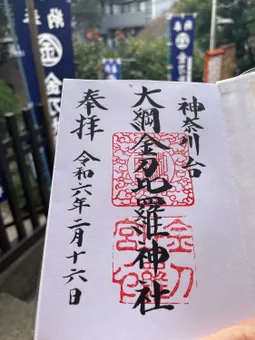 神奈川台
大綱金刀比羅神社
奉拝
令和六年二月十六日
金刀
宮
奉納
金